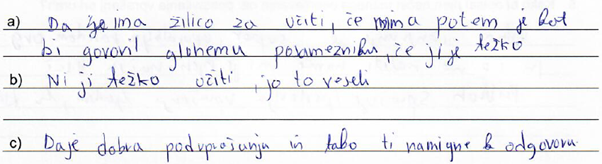 a) Da že ima žilico za učiti, če nima potem je kot
bi govoril gluhemu posamezniku, če ji je težko
b) Ni ji težko učiti, jo to veseli
c) Daje dobra podvprašanja in tako ti namigne k odgovoru